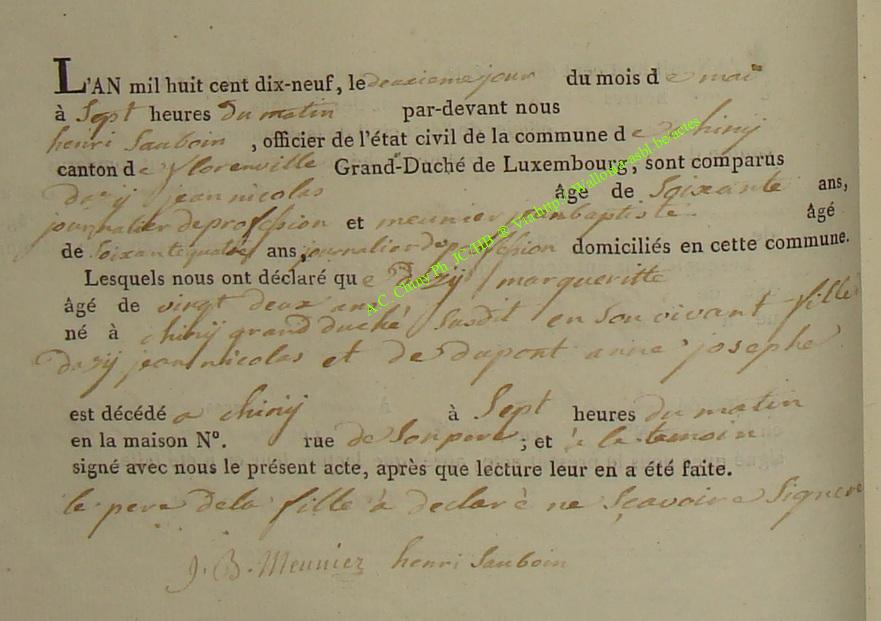 L'AN mil huit cent dix-neuf, le deuxieme jour du mois de mai
à Sept heures du matin par-devant nous
henri Sauboin, officier de l'état civil de la commune de Chiny
canton de florenville Grand-Duché de Luxembourg, sont comparus
dazij jean nicolas âgé de Soixante ans,
journalier de profession et meunier jeanbaptiste âgé
de Soixante quatre ans, journalier de profession domiciliés en cette commune.
Lesquels nous ont déclaré que dazij margueritte
âgé de vingt deux ans
né à chinij grand duché susdit en son vivant fille
dazij jean nicolas et de dupont anne josephe
est décédé a chinij à Sept heures du matin
en la maison N°. rue de Son pere; et a le temoin
signé avec nous le présent acte, après que lecture leur en a été faite.
le pere dela fille à declaré ne Sçavoire Signer
J. B. Meunier henri Sauboin
A.C. Chiny Ph. JC-HB @ Viathup's Wallonia-asbl.be/actes